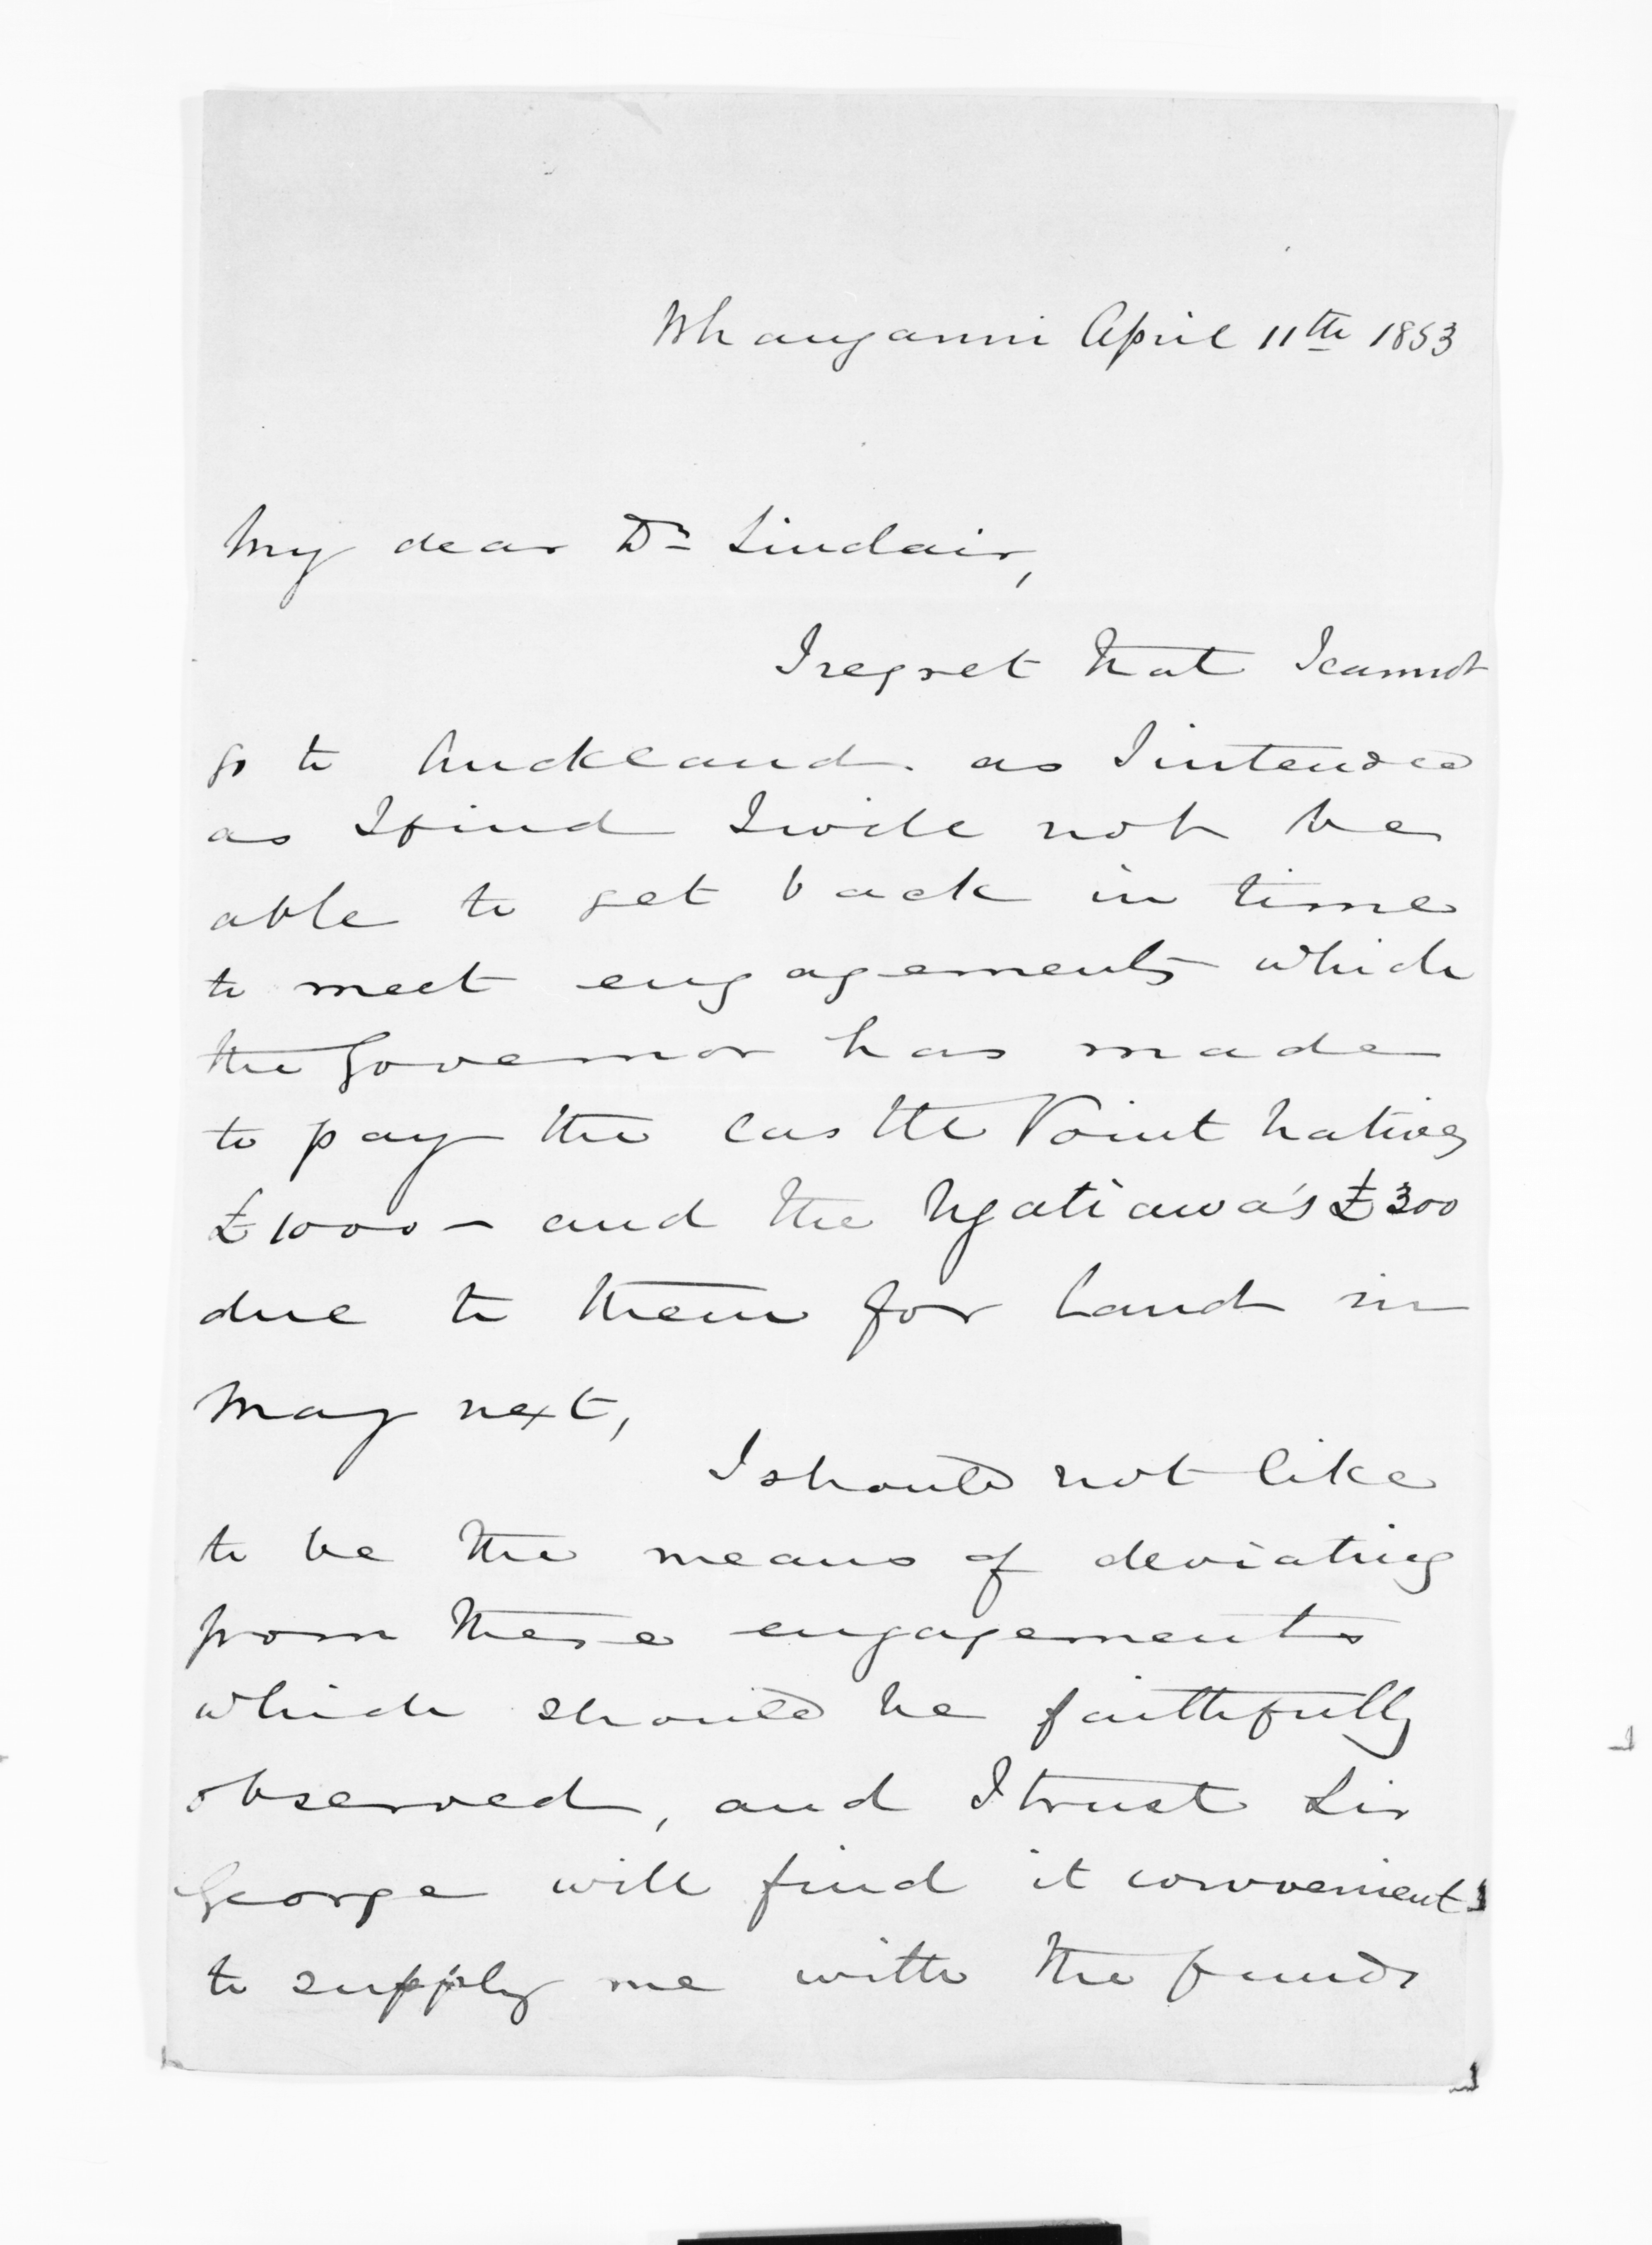 Whanganui April 11th 1853
My dear Dr Sinclair,
I regret that I cannot
go to Auckland. as I intended
as I find I will not be
able to get back in time
to meet engagements which
the Governor has made
to pay the Castle Point Natives
£1000 - and the Ngatiawa's £300
due to them for Land in
May next,
I should not like
to be the means of deviating
from these engagements
which should be faithfully
observed, and I trust Sir
George will find it convenient
to supply me with the funds